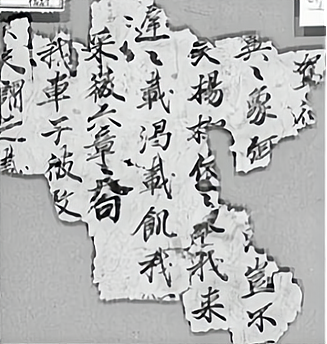 翼〻象弭豈不
矣楊柳依〻今我来
遲〻載渇載飢我
采薇六章〻八句
我車于彼牧
夫謂之載